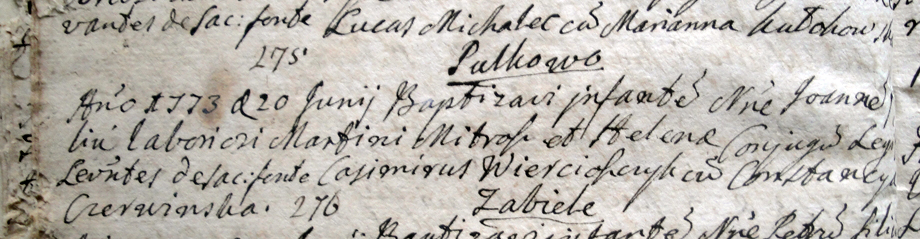 vantes de sac: fonte Lucas Michalec cũ Marianna Kutohow
275 Pulkowo
Año 1773 d 20 Junij Baptizavi infantẽ Nñe Joannẽ
liũ laboriosi Martini Mitros et Helenæ Conjugũ Leg
Levñtes de sac: fonte Casimirus Wiercioszczyk cũ Constancya
Czerwinska. 276 Zabiele
Baptizavi infantẽ Nñe Petrũ fili